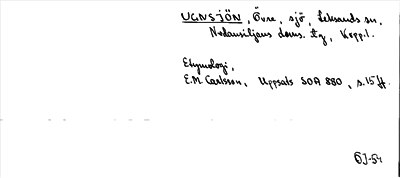 UGNSJÖN, Övre, sjö, Leksands sn,
Nedansiljans doms. tg, Kopp.l.
Etymologi,
E.M. Carlsson, Uppsats SOA 880, s. 15 ff.
BJ-54